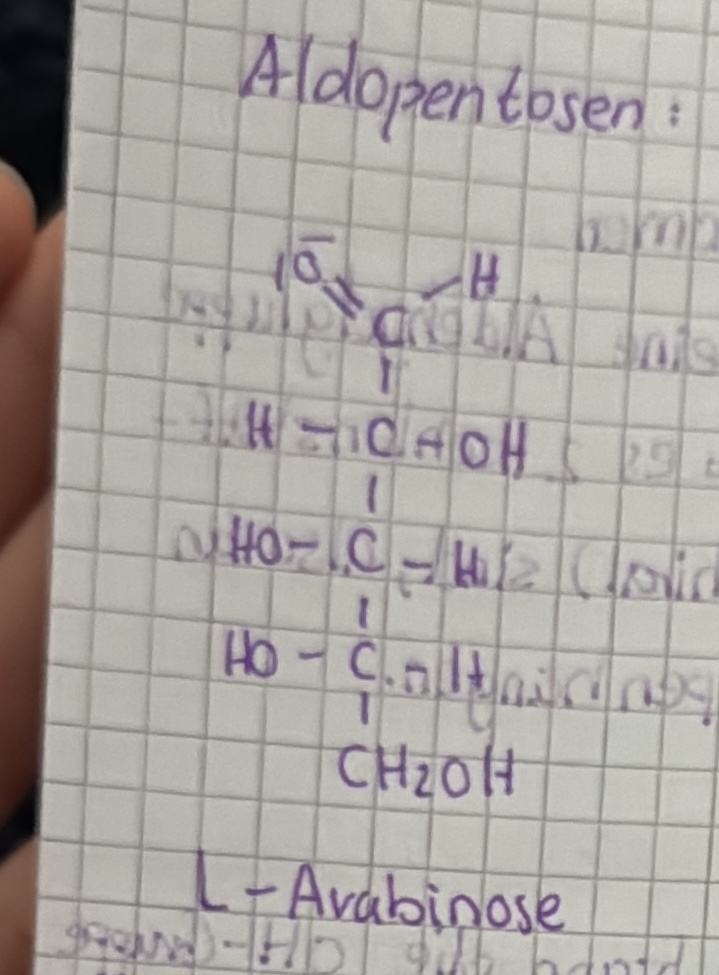 Aldopentosen:
|O̅ H
C
H - C - OH
HO - C - H
HO - C - H
CH2OH
L - Arabinose